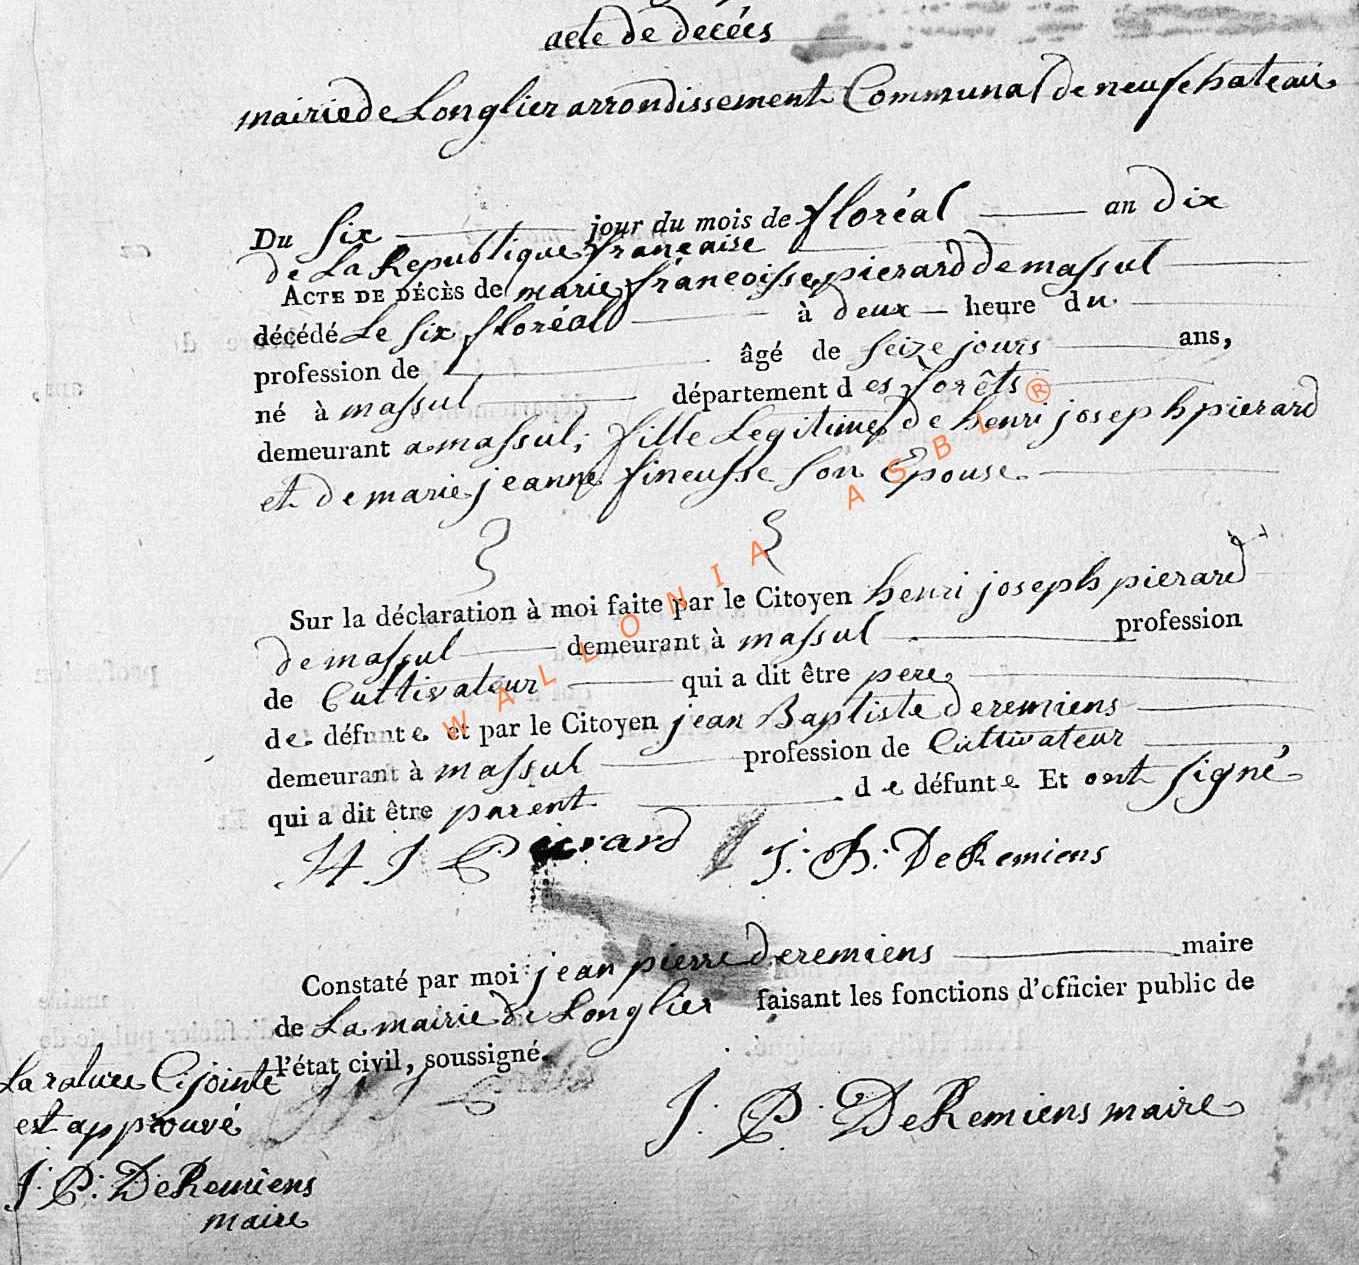 acte de decées
mairie de Longlier arrondissement Communal de neufchateau
Du six jour du mois de floréal an dix
de La Republique française
ACTE DE DÉCÈS de marie françoisse pierard de massul
décédé Le six floréal à deux heure du
profession de âgé de seize jours ans,
né à massul département des forêts
demeurant a massul, fille Legitime de henri joseph pierard
et de marie jeanne fineusse son Epouse.
Sur la déclaration à moi faite par le Citoyen henri joseph pierard
de massul demeurant à massul profession
de Cultivateur qui a dit être pere
de défunte et par le Citoyen jean Baptiste Deremiens
demeurant à massul profession de Cultivateur
qui a dit être parent de défunte Et ont signé
H J Pierard J. B. DeRemiens
Constaté par moi jean pierre Deremiens maire
de La mairie de Longlier faisant les fonctions d'officier public de
l'état civil, soussigné.
H J
J. P. DeRemiens maire
La rature Cijointe
est approuvé
J. P. DeRemiens
maire
WALLONIA ASBL ®